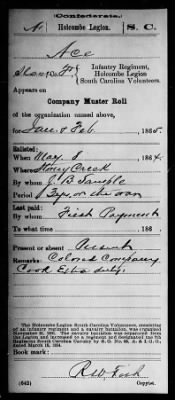 (Confederate.)
A Holcombe Legion. S. C.
Ace
Co. F, Infantry Regiment,
Holcombe Legion
South Carolina Volunteers.
Appears on
Company Muster Roll
of the organization named above,
for Jan & Feb, 1865.
Enlisted:
When May 8, 1864.
Where Stoney Creek
By whom J. B.
Period For the war
Last paid:
By whom First Payment
To what time 186 .
Present or absent Present
Remarks: Colored Company
Cook Extra duty.
The Holcombe Legion South Carolina Volunteers, consisting
of an infantry regiment and a cavalry battalion, was organized
November 21, 1861. The cavalry battalion was separated from
the Legion and increased to a regiment and designated the 7th
Regiment South Carolina Cavalry by S. O. No. 65, A. & I. G. O.,
dated March 18, 1864.
Book mark:
R W
(642) Copyist.